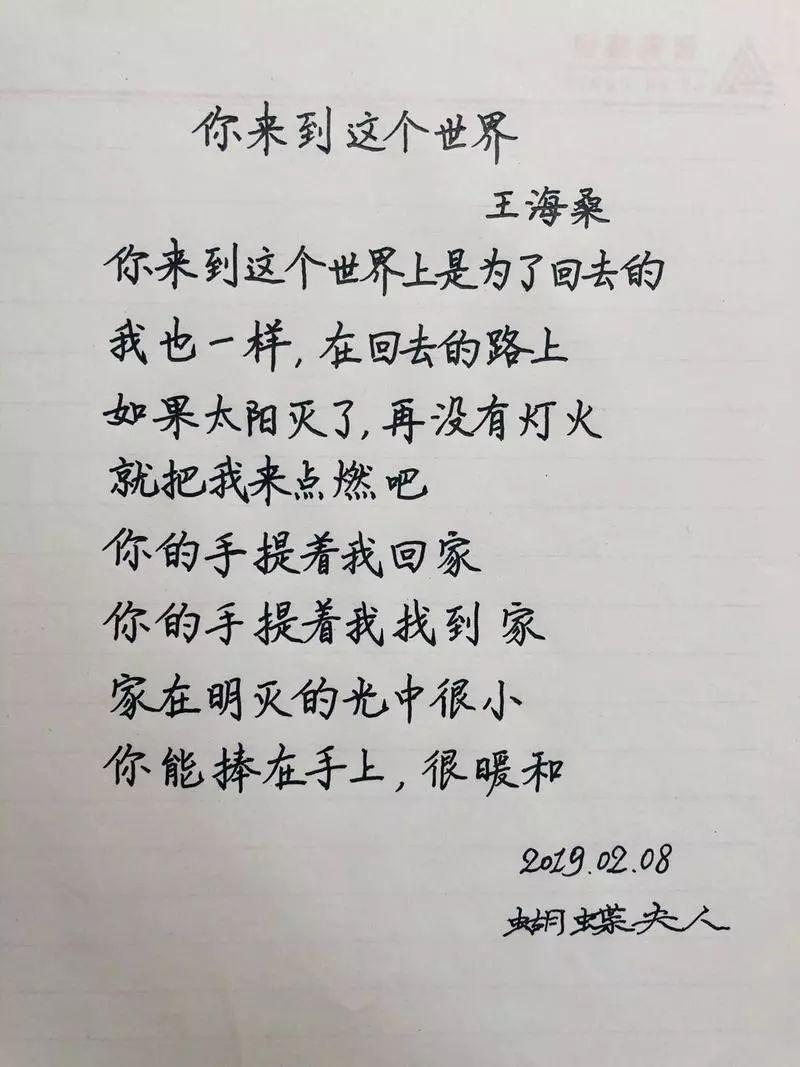 你来到这个世界
王海桑
你来到这个世界上是为了回去的
我也一样，在回去的路上
如果太阳灭了，再没有灯火
就把我来点燃吧
你的手提着我回家
你的手提着我找到家
家在明灭的光中很小
你能捧在手上，很暖和
2019.02.08
蝴蝶夫人